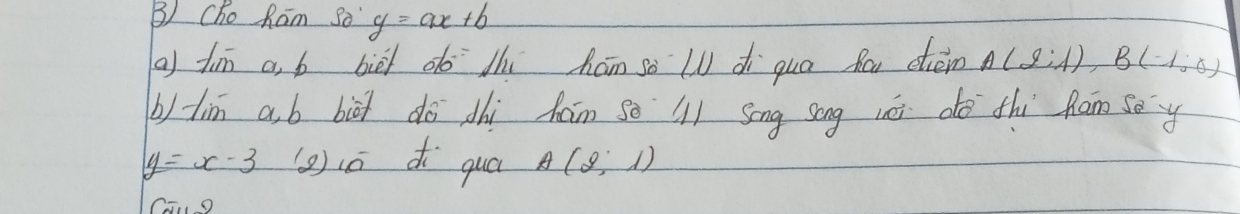 3) Cho hàm số y = ax + b
a) tìm a, b biết đồ thị hàm số (1) đi qua hai điểm A(2;1), B(-1;0)
b) tìm a, b biết đồ thị hàm số (1) song song với đồ thị hàm số y
y = x - 3 (2) và đi qua A(2; 1)
Câu 2